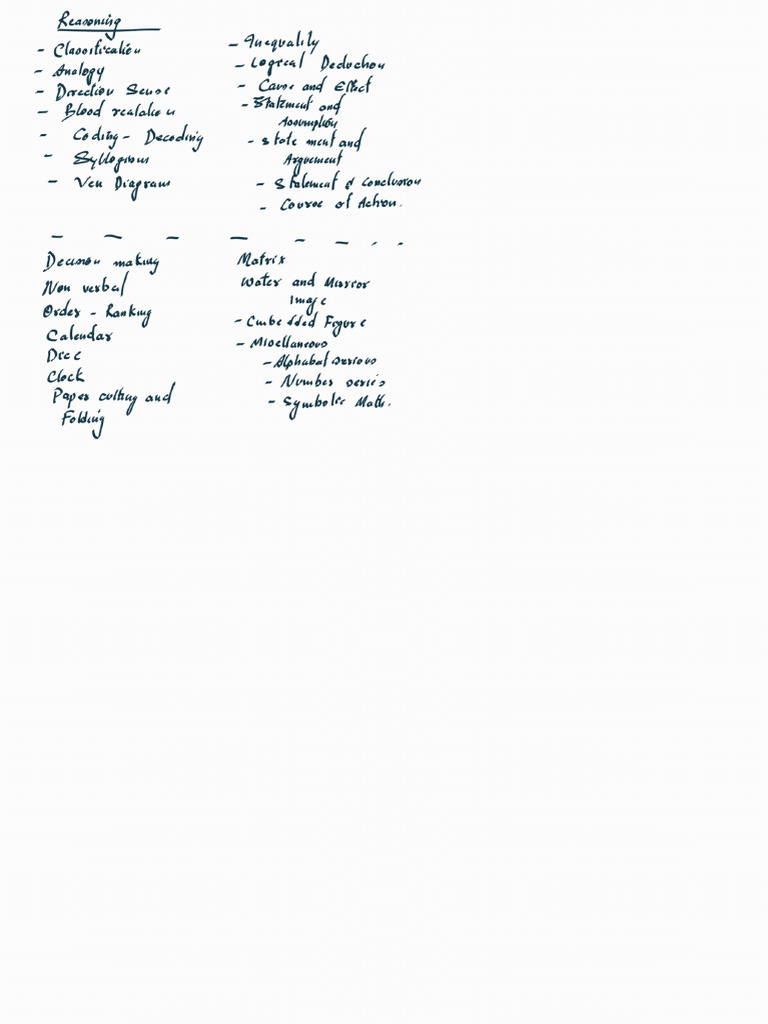 Reasoning
- Classification
- Analogy
- Direction Sense
- Blood realation
- Coding - Decoding
- Syllogism
- Ven Diagram
- Inequality
- Logical Deduction
- Cause and Effect
- Statement and
Assumption
- State ment and
Arguement
- Statement & conclusion
- Course of Action.
Decision making
Non verbal
Order - Ranking
Calendar
Dice
Clock
Paper cutting and
Folding
Matrix
Water and Mirror
Image
- Embedded Figure
- Miscellaneous
- Alphabet series
- Number series
- Symbolic Math.